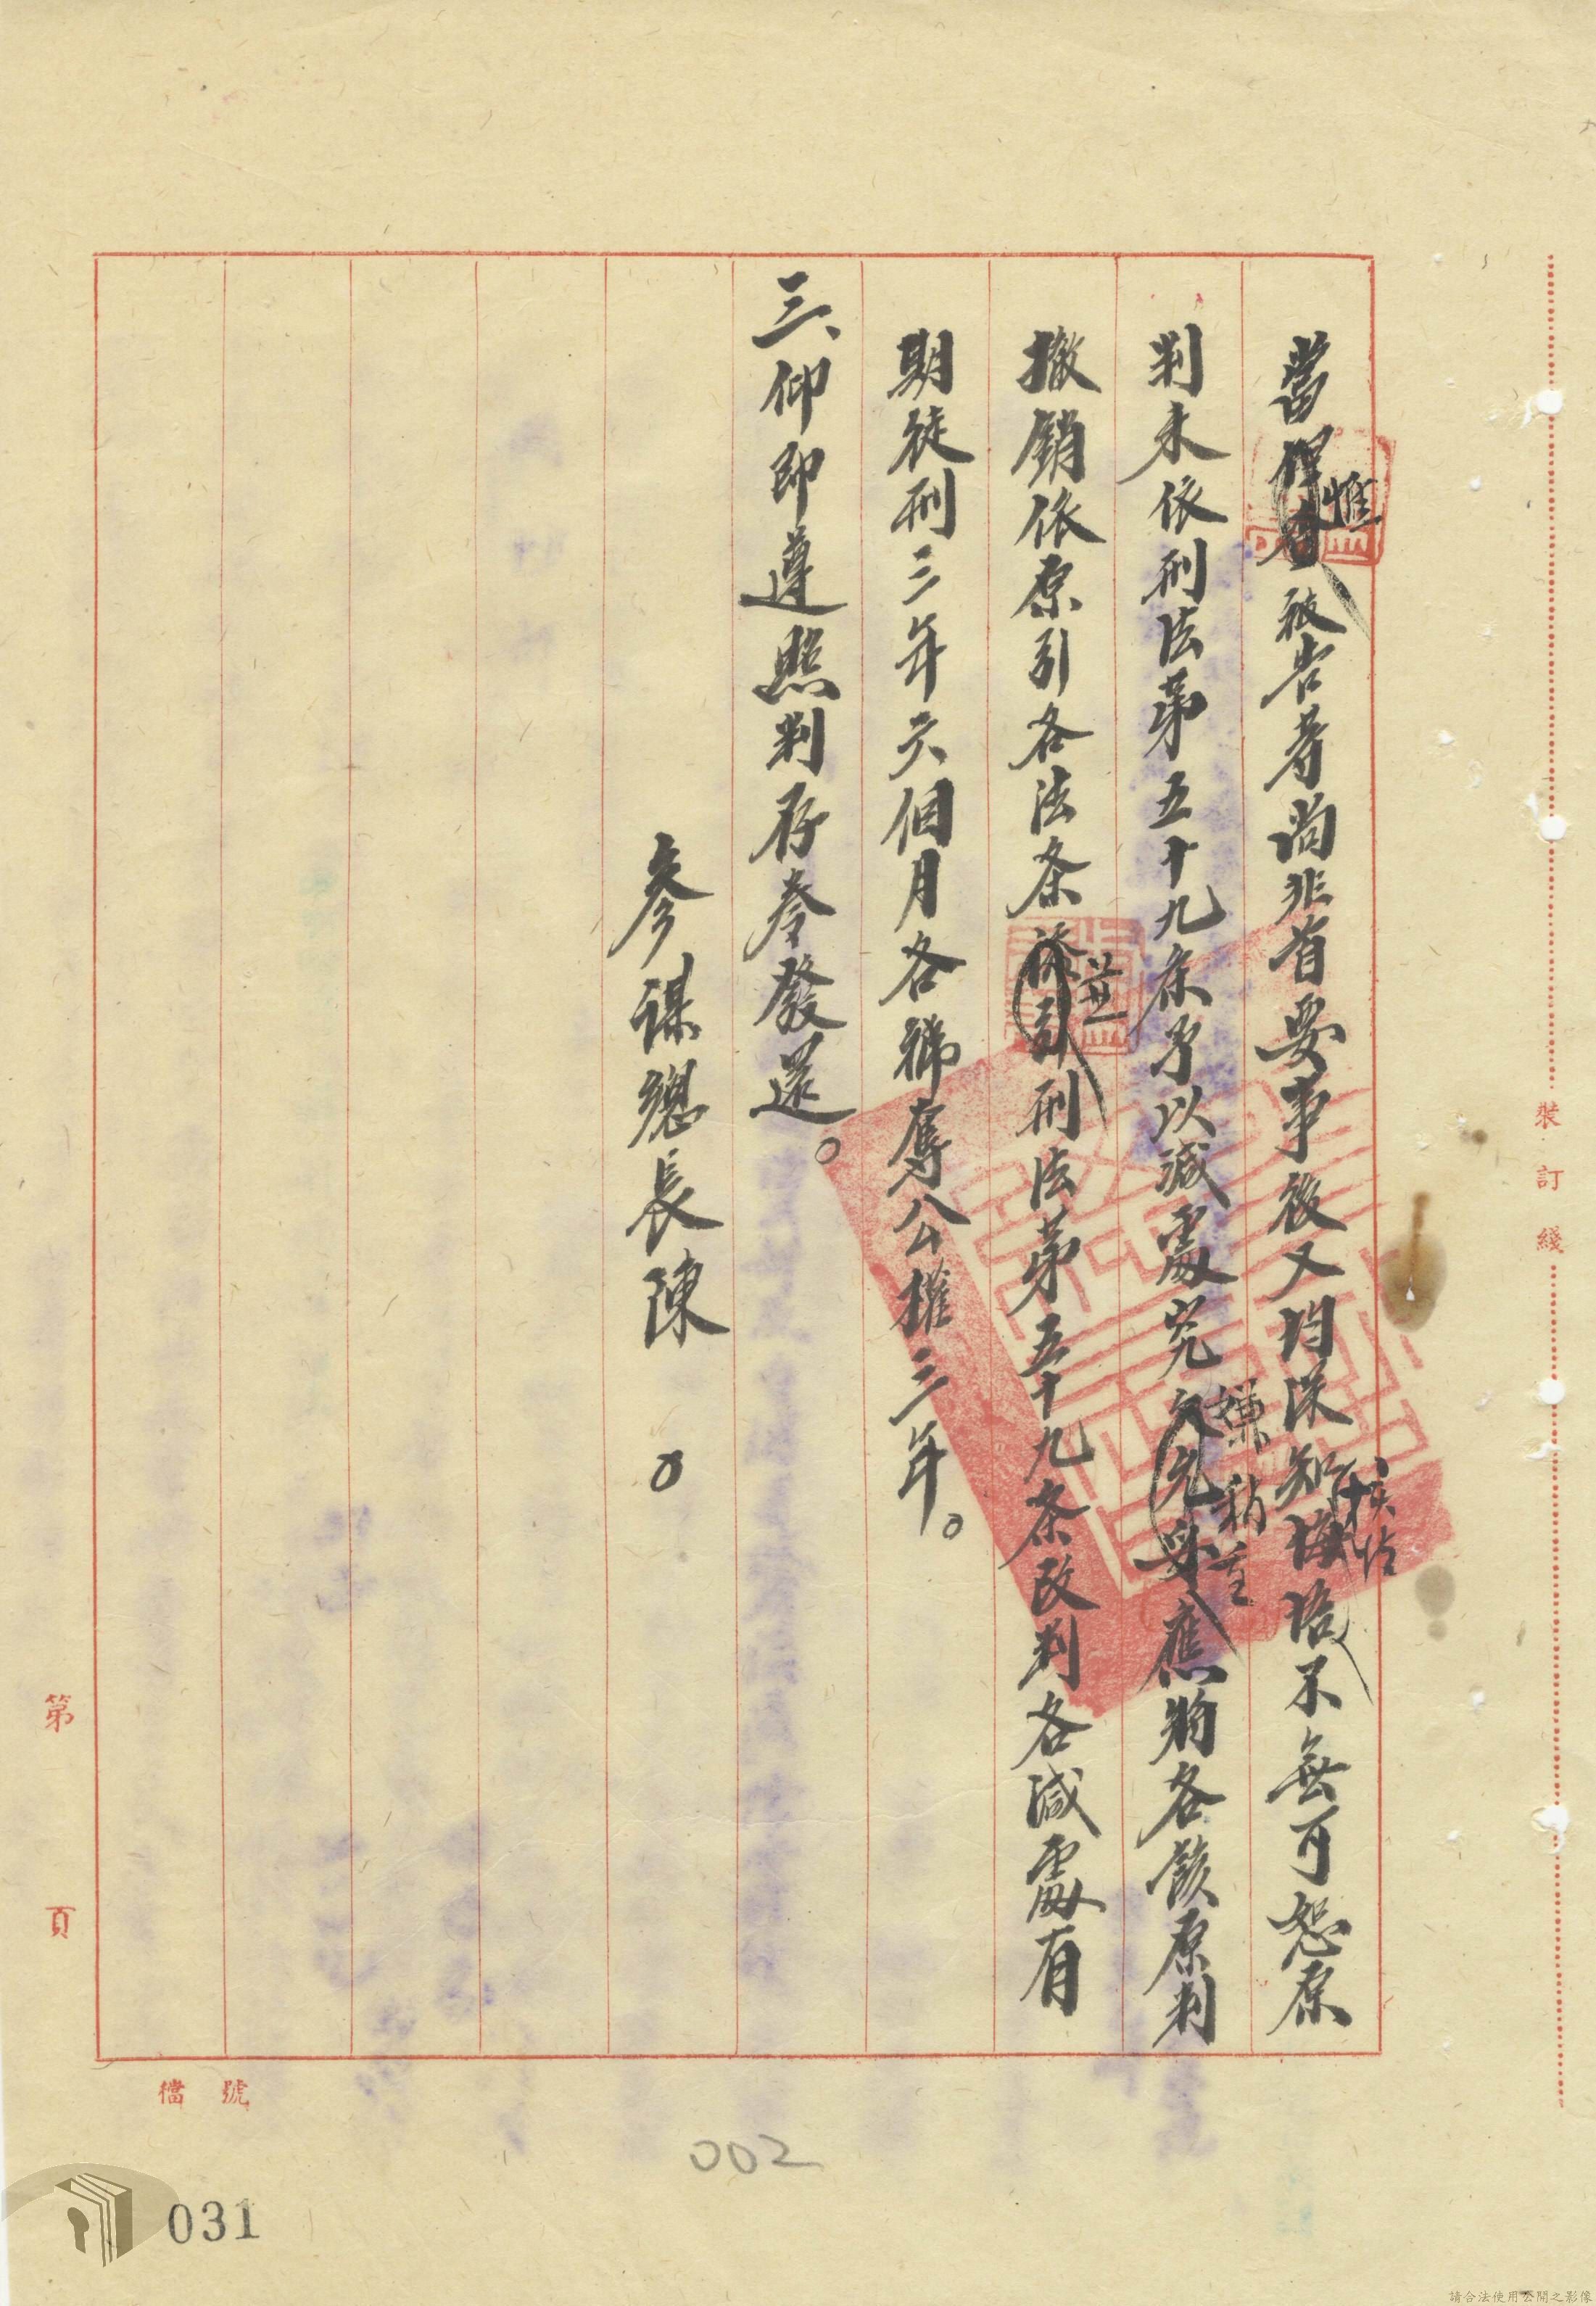 當惟被告等尚非首要事後又均深知悔悟不無可恕原
判未依刑法第五十九條予以減處究嫌稍重應將各該原判
撤銷依原引各法条並刑法第五十九条改判各減處有
期徒刑三年六個月各褫奪公權三年。
三、仰即遵照判存卷發還。
參謀總長陳
裝訂線
第 頁
檔號
002
031
請合法使用公開之影像